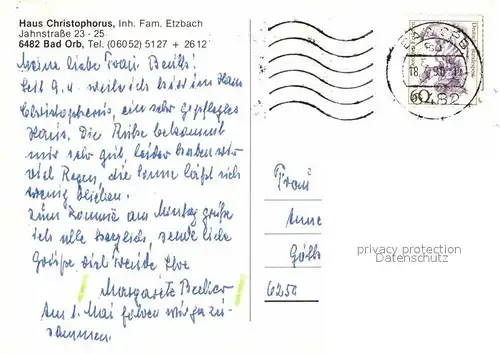 Haus Christophorus, Inh. Fam. Etzbach
Jahnstraße 23 - 25
6482 Bad Orb, Tel. (06052) 5127 + 2612
Meine liebe Frau
Seit 9.4. weile ich hier im Haus
Christophorus, ein sehr gepflegtes
Haus. Die Ruhe bekommt
mir sehr gut, leider haben wir
viel Regen, die Sonne läßt sich
wenig blicken.
Zum am Montag grüße
ich alle herzlich, sende liebe
Grüße Ihre
Margarete
Am 1. Mai fahren wir ja zu-
sammen.
BAD ORB
18
6482
60
Frau
Anne
6250
privacy protection
Datenschutz